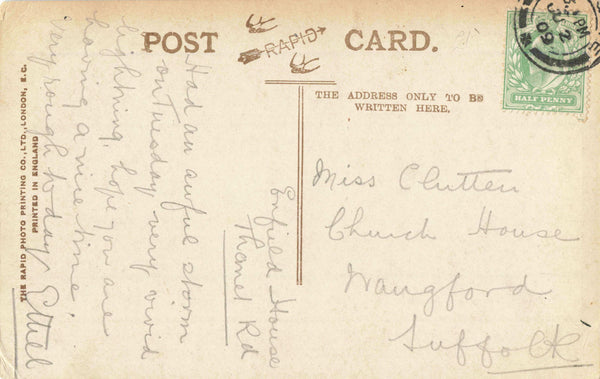 POST
RAPID
CARD.
THE ADDRESS ONLY TO BE
WRITTEN HERE.
HALF PENNY
PM
JU 2
09
THE RAPID PHOTO PRINTING CO., LTD., LONDON, E.C.
PRINTED IN ENGLAND
Enfield House
Thanet Rd
Had an awful storm
on Tuesday very vivid
lightning, hope you are
having a nice time.
Very rough to day, Ethel
Miss Clutten
Church House
Wangford
Suffolk